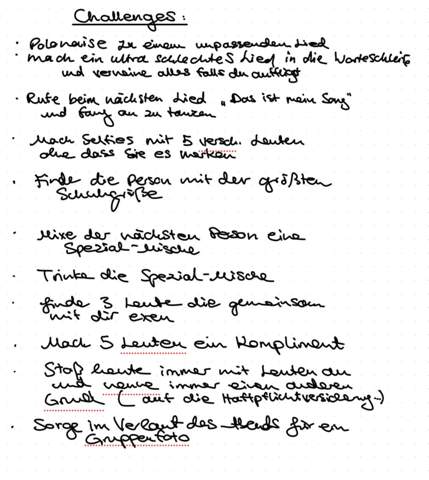 Challenges:
· Polonaise zu einem unpassenden Lied
· mach ein ultra schlechtes Lied in die Warteschleife
und verneine alles falls du auffliegst
· Rufe beim nächsten Lied „Das ist mein Song"
und fang an zu tanzen
· Mach Selfies mit 5 versch. Leuten
ohne dass Sie es merken
· Finde die Person mit der größten
Schuhgröße
· Mixe der nächsten Person eine
Spezial-Mische
· Trinke die Spezial-Mische
· finde 3 Leute die gemeinsam
mit dir exen
· Mach 5 Leuten ein Kompliment
· Stoß heute immer mit Leuten an
und nenne immer einen anderen
Grund ( auf die Haftpflichtversicherung..)
· Sorge im Verlauf des Abends für ein
Gruppenfoto